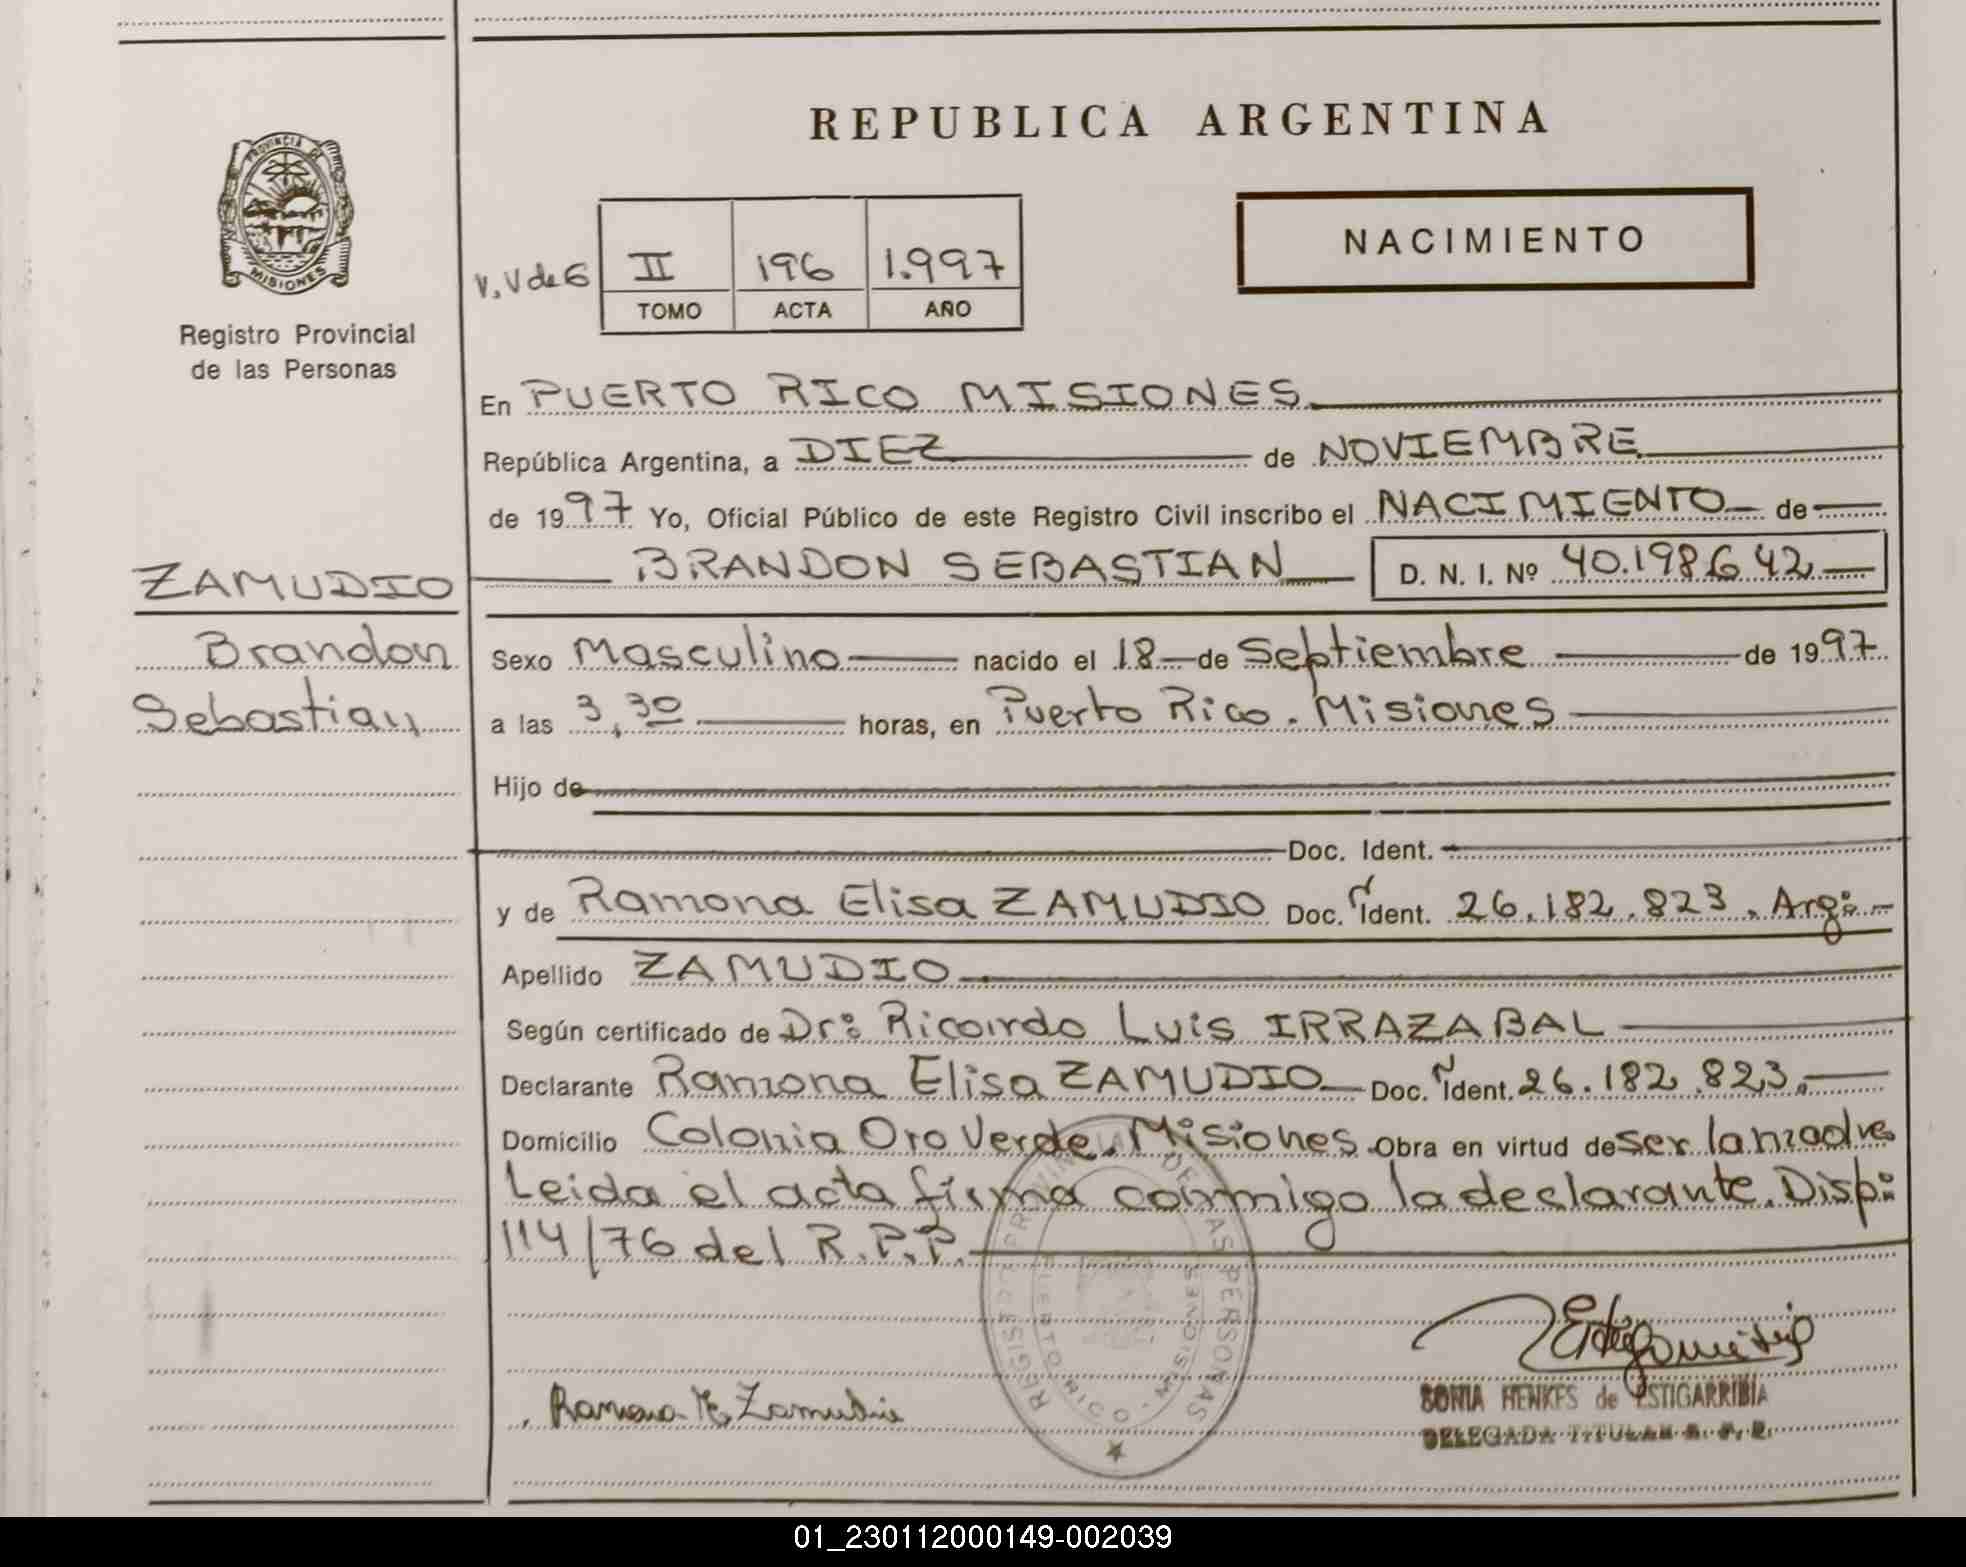 REPUBLICA ARGENTINA
PROVINCIA DE
MISIONES
Registro Provincial
de las Personas
V. V de 6
II 196 1.997
TOMO ACTA AÑO
NACIMIENTO
En PUERTO RICO MISIONES
República Argentina, a DIEZ de NOVIEMBRE
de 1997 Yo, Oficial Público de este Registro Civil inscribo el NACIMIENTO de
BRANDON SEBASTIAN D. N. I. Nº 40.198642
ZAMUDIO
Brandon
Sebastian
Sexo Masculino nacido el 18 de Septiembre de 1997
a las 3,30 horas, en Puerto Rico. Misiones
Hijo de
Doc. Ident.
y de Ramona Elisa ZAMUDIO Doc. Ident. 26.182.823. Arg:
Apellido ZAMUDIO
Según certificado de Dr: Ricardo Luis IRRAZABAL
Declarante Ramona Elisa ZAMUDIO Doc. Ident. 26.182.823.
Domicilio Colonia Oro Verde. Misiones Obra en virtud de ser la madre
Leida el acta firma conmigo la declarante. Disp:
114/76 del R.P.P.
REGISTRO PROVINCIAL DE LAS PERSONAS
PUERTO RICO - MISIONES
Ramona E. Zamudio
SONIA HENKES de ESTIGARRIBIA
DELEGADA TITULAR R. P. P.
01_230112000149-002039